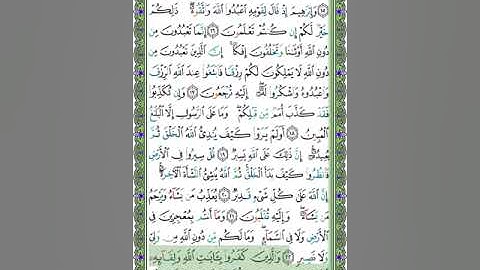 ۝١٥ وَإِبْرَٰهِيمَ إِذْ قَالَ لِقَوْمِهِ ٱعْبُدُوا۟ ٱللَّهَ وَٱتَّقُوهُ ۖ ذَٰلِكُمْ
خَيْرٌ لَّكُمْ إِن كُنتُمْ تَعْلَمُونَ ۝١٦ إِنَّمَا تَعْبُدُونَ مِن
دُونِ ٱللَّهِ أَوْثَٰنًا وَتَخْلُقُونَ إِفْكًا ۚ إِنَّ ٱلَّذِينَ تَعْبُدُونَ مِن
دُونِ ٱللَّهِ لَا يَمْلِكُونَ لَكُمْ رِزْقًا فَٱبْتَغُوا۟ عِندَ ٱللَّهِ ٱلرِّزْقَ
وَٱعْبُدُوهُ وَٱشْكُرُوا۟ لَهُۥٓ ۖ إِلَيْهِ تُرْجَعُونَ ۝١٧ وَإِن تُكَذِّبُوا۟
فَقَدْ كَذَّبَ أُمَمٌ مِّن قَبْلِكُمْ ۖ وَمَا عَلَى ٱلرَّسُولِ إِلَّا ٱلْبَلَٰغُ
ٱلْمُبِينُ ۝١٨ أَوَلَمْ يَرَوْا۟ كَيْفَ يُبْدِئُ ٱللَّهُ ٱلْخَلْقَ ثُمَّ
يُعِيدُهُۥٓ ۚ إِنَّ ذَٰلِكَ عَلَى ٱللَّهِ يَسِيرٌ ۝١٩ قُلْ سِيرُوا۟ فِى ٱلْأَرْضِ
فَٱنظُرُوا۟ كَيْفَ بَدَأَ ٱلْخَلْقَ ۚ ثُمَّ ٱللَّهُ يُنشِئُ ٱلنَّشْأَةَ ٱلْءَاخِرَةَ ۚ
إِنَّ ٱللَّهَ عَلَىٰ كُلِّ شَىْءٍ قَدِيرٌ ۝٢٠ يُعَذِّبُ مَن يَشَآءُ وَيَرْحَمُ
مَن يَشَآءُ ۖ وَإِلَيْهِ تُقْلَبُونَ ۝٢١ وَمَآ أَنتُم بِمُعْجِزِينَ فِى
ٱلْأَرْضِ وَلَا فِى ٱلسَّمَآءِ ۖ وَمَا لَكُم مِّن دُونِ ٱللَّهِ مِن وَلِىٍّ
وَلَا نَصِيرٍ ۝٢٢ وَٱلَّذِينَ كَفَرُوا۟ بِـَٔايَٰتِ ٱللَّهِ وَلِقَآئِهِۦٓ